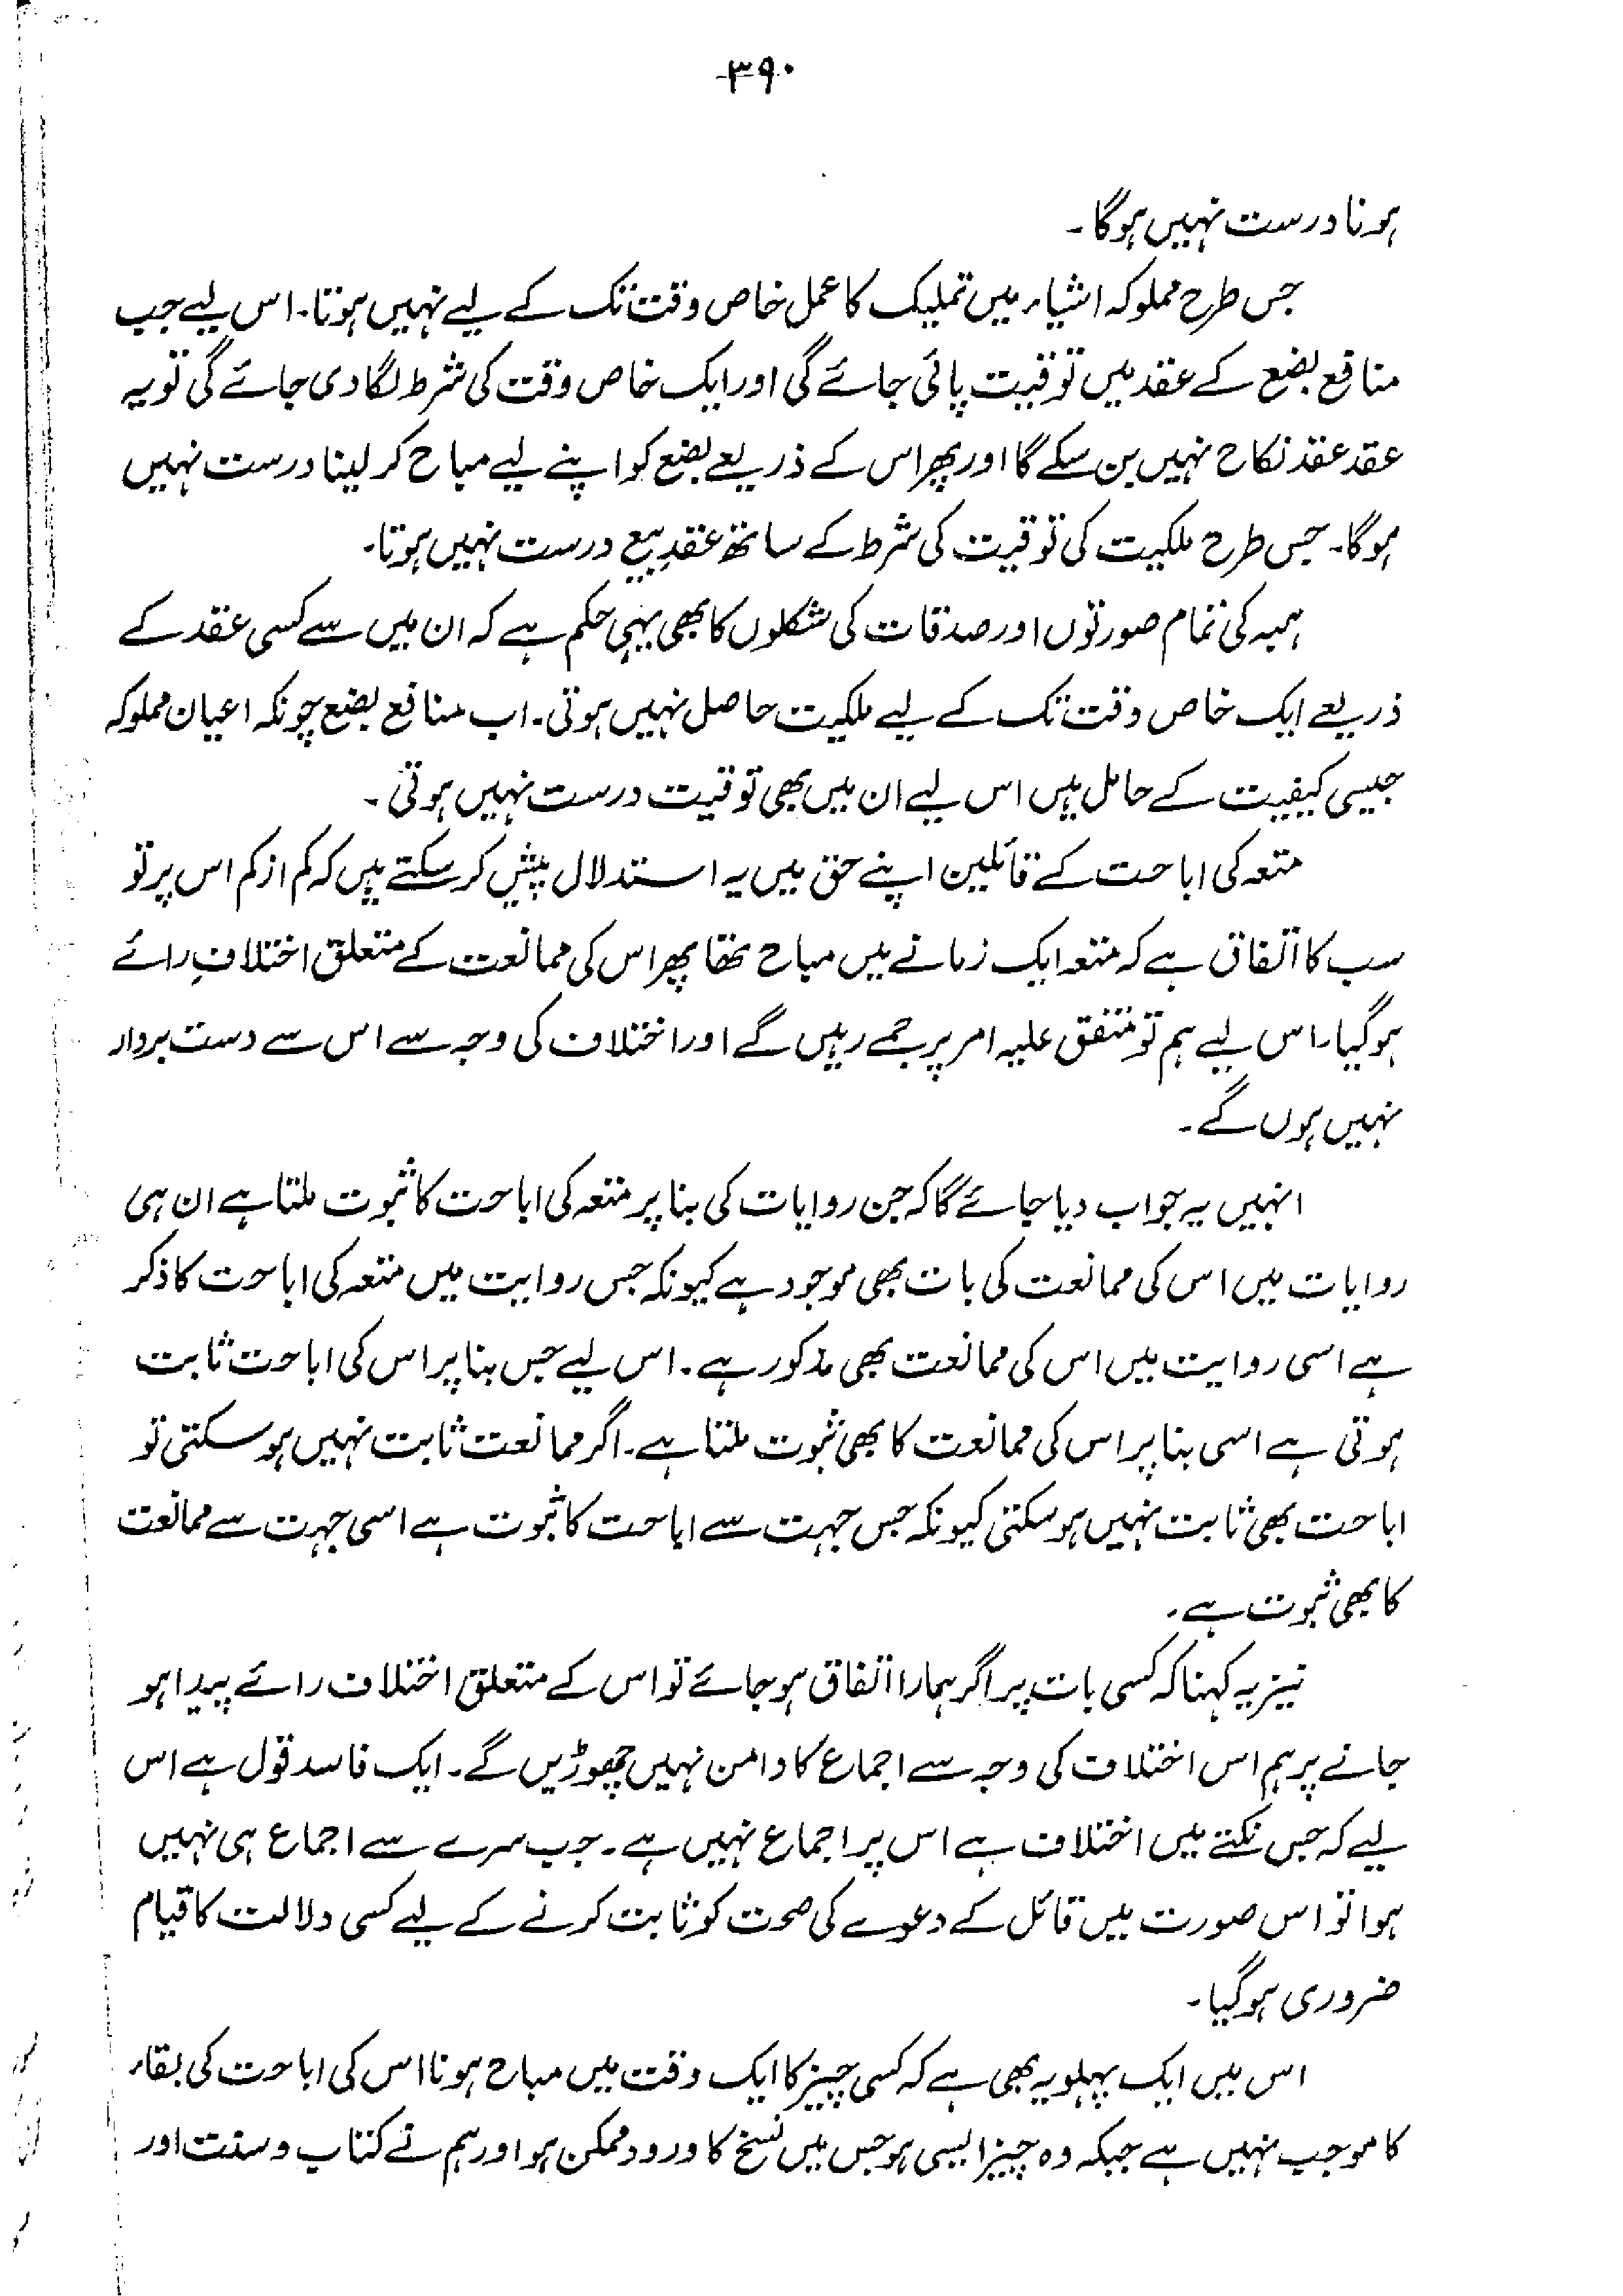 ۳۹۰
ہونا درست نہیں ہوگا۔
جس طرح مملوکہ اشیاء میں تملیک کا عمل خاص وقت تک کے لیے نہیں ہوتا۔ اس لیے جب
منافع بضع کے عقد میں توقیت پائی جائے گی اور ایک خاص وقت کی شرط لگا دی جائے گی تو یہ
عقد عقد نکاح نہیں بن سکے گا اور پھر اس کے ذریعے بضع کو اپنے لیے مباح کر لینا درست نہیں
ہوگا۔ جس طرح ملکیت کی توقیت کی شرط کے ساتھ عقدِ بیع درست نہیں ہوتا۔
ہبہ کی تمام صورتوں اور صدقات کی شکلوں کا بھی یہی حکم ہے کہ ان میں سے کسی عقد کے
ذریعے ایک خاص وقت تک کے لیے ملکیت حاصل نہیں ہوتی۔ اب منافع بضع چونکہ اعیان مملوکہ
جیسی کیفیت کے حامل ہیں اس لیے ان میں بھی توقیت درست نہیں ہوتی۔
متعہ کی اباحت کے قائلین اپنے حق میں یہ استدلال پیش کر سکتے ہیں کہ کم از کم اس پر تو
سب کا اتفاق ہے کہ متعہ ایک زمانے میں مباح تھا پھر اس کی ممانعت کے متعلق اختلافِ رائے
ہوگیا۔ اس لیے ہم تو متفق علیہ امر پر جمے رہیں گے اور اختلاف کی وجہ سے اس سے دست بردار
نہیں ہوں گے۔
انہیں یہ جواب دیا جائے گا کہ جن روایات کی بنا پر متعہ کی اباحت کا ثبوت ملتا ہے ان ہی
روایات میں اس کی ممانعت کی بات بھی موجود ہے کیونکہ جس روایت میں متعہ کی اباحت کا ذکر
ہے اسی روایت میں اس کی ممانعت بھی مذکور ہے۔ اس لیے جس بنا پر اس کی اباحت ثابت
ہوتی ہے اسی بنا پر اس کی ممانعت کا بھی ثبوت ملتا ہے۔ اگر ممانعت ثابت نہیں ہو سکتی تو
اباحت بھی ثابت نہیں ہو سکتی کیونکہ جس جہت سے اباحت کا ثبوت ہے اسی جہت سے ممانعت
کا بھی ثبوت ہے۔
نیز یہ کہنا کہ کسی بات پر اگر ہمارا اتفاق ہو جائے تو اس کے متعلق اختلاف رائے پیدا ہو
جانے پر ہم اس اختلاف کی وجہ سے اجماع کا دامن نہیں چھوڑیں گے۔ ایک فاسد قول ہے اس
لیے کہ جس نکتے میں اختلاف ہے اس پر اجماع نہیں ہے۔ جب سرے سے اجماع ہی نہیں
ہوا تو اس صورت میں قائل کے دعوے کی صحت کو ثابت کرنے کے لیے کسی دلالت کا قیام
ضروری ہوگیا۔
اس میں ایک پہلو یہ بھی ہے کہ کسی چیز کا ایک وقت میں مباح ہونا اس کی اباحت کی بقاء
کا موجب نہیں ہے جبکہ وہ چیز ایسی ہو جس میں نسخ کا ورود ممکن ہو اور ہم نے کتاب و سنت اور